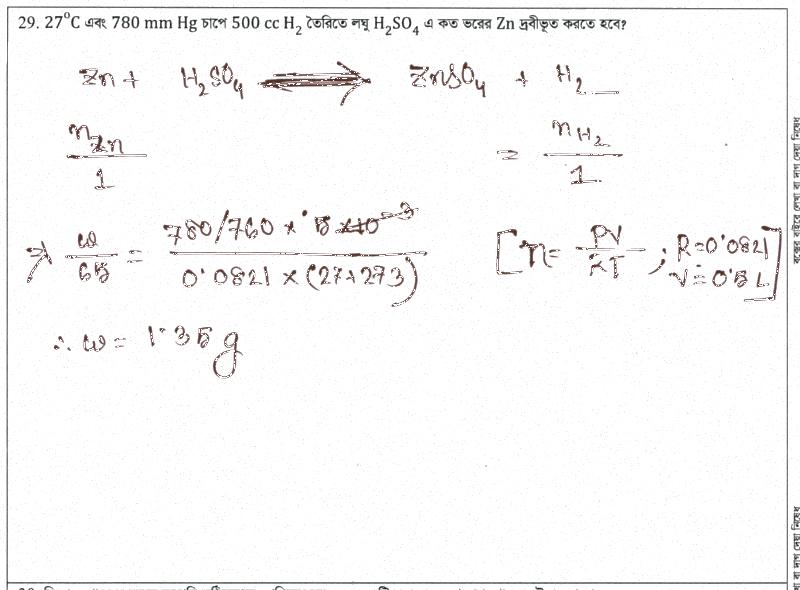 29. 27°C এবং 780 mm Hg চাপে 500 cc H₂ তৈরিতে লঘু H₂SO₄ এ কত ভরের Zn দ্রবীভূত করতে হবে?
Zn + H₂SO₄ ⟶ ZnSO₄ + H₂
n_Zn/1 = n_H₂/1
⇒ w/65 = (780/760 × ·5)/(0·0821 × (27+273)) [n = PV/RT ; R=0·0821 V = 0·5 L]
∴ w = 1·35 g